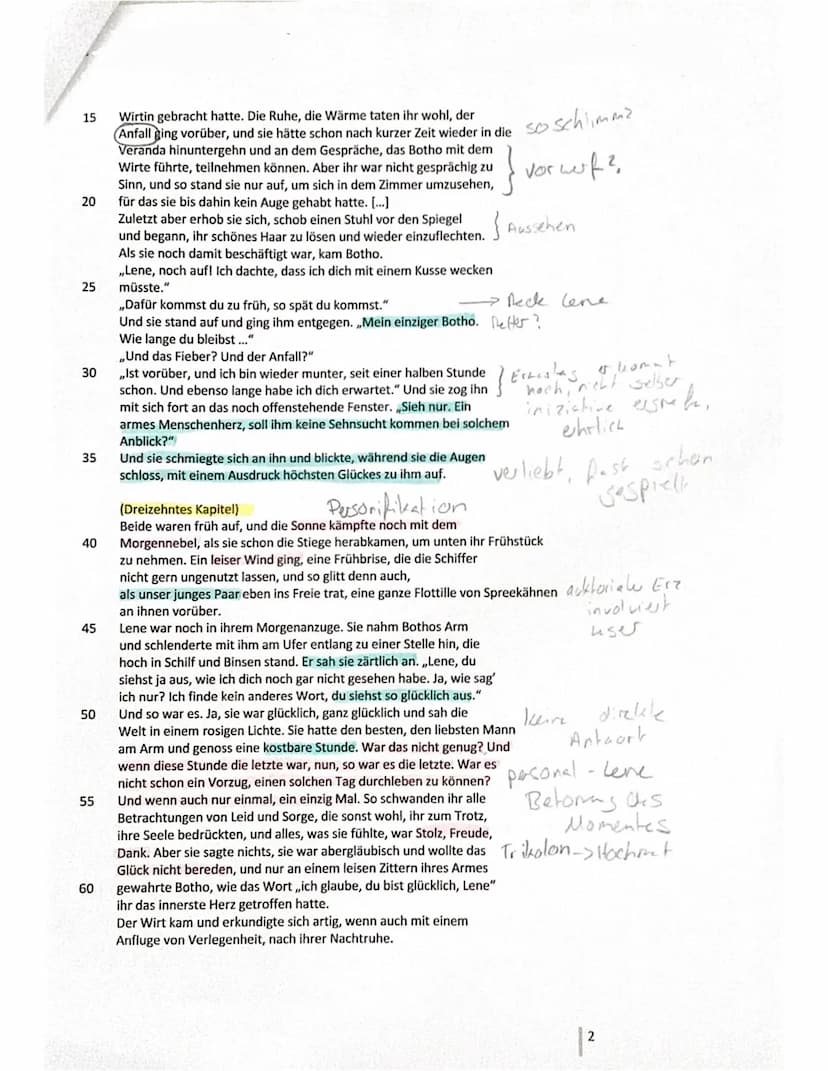 15 Wirtin gebracht hatte. Die Ruhe, die Wärme taten ihr wohl, der
Anfall ging vorüber, und sie hätte schon nach kurzer Zeit wieder in die
so schlimm?
Veranda hinuntergehn und an dem Gespräche, das Botho mit dem
Wirte führte, teilnehmen können. Aber ihr war nicht gesprächig zu
Vorwurf?
Sinn, und so stand sie nur auf, um sich in dem Zimmer umzusehen,
20 für das sie bis dahin kein Auge gehabt hatte. [...]
Zuletzt aber erhob sie sich, schob einen Stuhl vor den Spiegel
und begann, ihr schönes Haar zu lösen und wieder einzuflechten.
Aussehen
Als sie noch damit beschäftigt war, kam Botho.
„Lene, noch auf! Ich dachte, dass ich dich mit einem Kusse wecken
25 müsste.“
„Dafür kommst du zu früh, so spät du kommst.“
Neck Lene
Und sie stand auf und ging ihm entgegen. „Mein einziger Botho.
Wie lange du bleibst ...“
„Und das Fieber? Und der Anfall?“
30 „Ist vorüber, und ich bin wieder munter, seit einer halben Stunde
er kommt
schon. Und ebenso lange habe ich dich erwartet.“ Und sie zog ihn
nicht selber
mit sich fort an das noch offenstehende Fenster. „Sieh nur. Ein
iniziative
armes Menschenherz, soll ihm keine Sehnsucht kommen bei solchem
ehrlich
Anblick?“
35 Und sie schmiegte sich an ihn und blickte, während sie die Augen
schloss, mit einem Ausdruck höchsten Glückes zu ihm auf.
verliebt, fast schon
gespielt
(Dreizehntes Kapitel)
Personifikation
Beide waren früh auf, und die Sonne kämpfte noch mit dem
40 Morgennebel, als sie schon die Stiege herabkamen, um unten ihr Frühstück
zu nehmen. Ein leiser Wind ging, eine Frühbrise, die die Schiffer
nicht gern ungenutzt lassen, und so glitt denn auch,
als unser junges Paar eben ins Freie trat, eine ganze Flottille von Spreekähnen
Erz
an ihnen vorüber.
involviert
45 Lene war noch in ihrem Morgenanzuge. Sie nahm Bothos Arm
user
und schlenderte mit ihm am Ufer entlang zu einer Stelle hin, die
hoch in Schilf und Binsen stand. Er sah sie zärtlich an. „Lene, du
siehst ja aus, wie ich dich noch gar nicht gesehen habe. Ja, wie sag’
ich nur? Ich finde kein anderes Wort, du siehst so glücklich aus.“
50 Und so war es. Ja, sie war glücklich, ganz glücklich und sah die
keine direkte
Welt in einem rosigen Lichte. Sie hatte den besten, den liebsten Mann
Antwort
am Arm und genoss eine kostbare Stunde. War das nicht genug? Und
wenn diese Stunde die letzte war, nun, so war es die letzte. War es
personal - Lene
nicht schon ein Vorzug, einen solchen Tag durchleben zu können?
55 Und wenn auch nur einmal, ein einzig Mal. So schwanden ihr alle
Betonung des
Betrachtungen von Leid und Sorge, die sonst wohl, ihr zum Trotz,
Momentes
ihre Seele bedrückten, und alles, was sie fühlte, war Stolz, Freude,
Dank. Aber sie sagte nichts, sie war abergläubisch und wollte das
Trikolon -> Hochmut
Glück nicht bereden, und nur an einem leisen Zittern ihres Armes
60 gewahrte Botho, wie das Wort „ich glaube, du bist glücklich, Lene“
ihr das innerste Herz getroffen hatte.
Der Wirt kam und erkundigte sich artig, wenn auch mit einem
Anfluge von Verlegenheit, nach ihrer Nachtruhe.
2